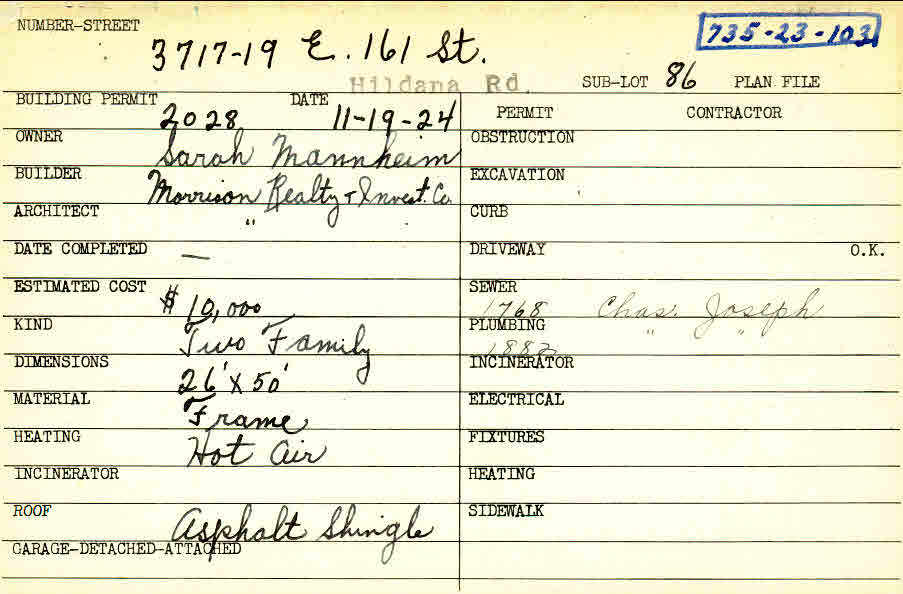 NUMBER-STREET 3717-19 E. 161 St. 735-23-103
Hildana Rd. SUB-LOT 86 PLAN FILE
BUILDING PERMIT 2028 DATE 11-19-24 PERMIT CONTRACTOR
OWNER Sarah Mannheim OBSTRUCTION
BUILDER Morrison Realty & Invest. Co. EXCAVATION
ARCHITECT " CURB
DATE COMPLETED — DRIVEWAY O.K.
ESTIMATED COST $10,000 SEWER 1768 Chas. Joseph
KIND Two Family PLUMBING 1882 " "
DIMENSIONS 26' X 50' INCINERATOR
MATERIAL Frame ELECTRICAL
HEATING Hot Air FIXTURES
INCINERATOR HEATING
ROOF Asphalt Shingle SIDEWALK
GARAGE-DETACHED-ATTACHED